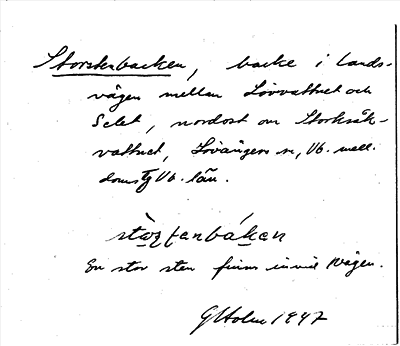 Storstenbacken, backe i lands-
vägen mellan Lövvattnet och
Selet, nordost om Storksåk-
vattnet, Lövångers sn, Vb. mell.
doms Vb. län.
En stor sten finns invid vägen.
G Holm 1947